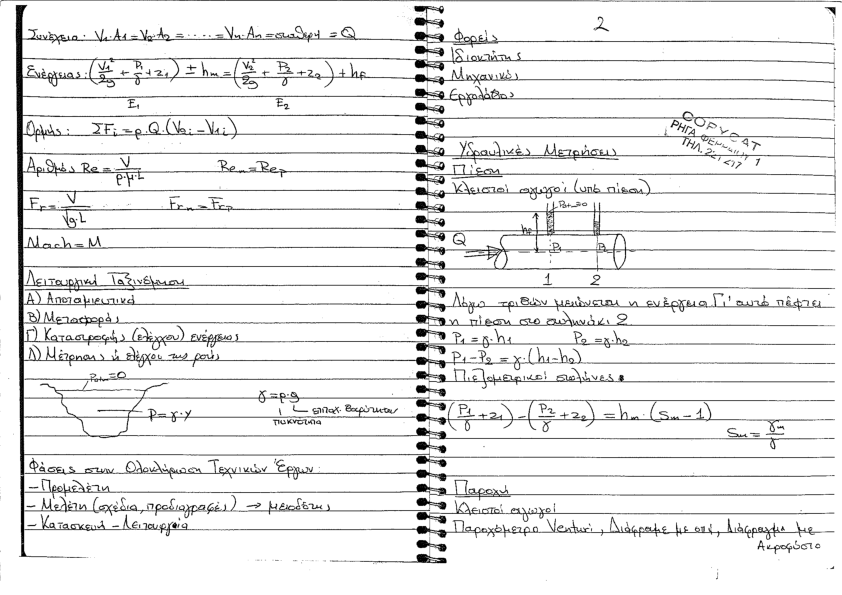 Συνέχεια: V₁·A₁=V₂·A₂=......=Vₙ·Aₙ=σταθερή=Q
Ενέργειας: (V₁²/2g + P₁/γ + z₁) ± hₘ = (V₂²/2g + P₂/γ + z₂) + h_f
E₁ E₂
Ορμής: ΣFᵢ=ρ·Q·(V₂ᵢ-V₁ᵢ)
Αριθμός Re = V/ρ·μ·L Reₘ=Reₚ
Fr = V/√g·L Frₘ=Frₚ
Mach=M
Λειτουργική Ταξινόμηση
Α) Αποταμιευτικά
Β) Μεταφοράς
Γ) Καταστροφής (ελέγχου) ενέργειας
Δ) Μέτρησης ή ελέγχου της ροής
Pατμ=0
P=γ·y
γ=ρ·g
επιταχ. βαρύτητας
πυκνότητα
Φάσεις στην Ολοκλήρωση Τεχνικών Έργων:
- Προμελέτη
- Μελέτη (σχέδια, προδιαγραφές) → μειοδότης
- Κατασκευή - Λειτουργία
2
Φορείς
Ιδιοκτήτης
Μηχανικός
Εργολάβος
COPYCAT
ΡΗΓΑ ΦΕΡΑΙΟΥ 1
ΤΗΛ. 221217
Υδραυλικές Μετρήσεις
Πίεση
Κλειστοί αγωγοί (υπό πίεση)
Pατμ=0
h_f
Q
P₁ P₂
1 2
Λόγω τριβών μειώνεται η ενέργεια Γι' αυτό πέφτει
η πίεση στο σωληνάκι 2.
P₁=γ·h₁ P₂=γ·h₂
P₁-P₂=γ·(h₁-h₂)
Πιεζομετρικοί σωλήνες.
(P₁/γ + z₁) - (P₂/γ + z₂) = hₘ·(Sₘ-1)
Sₘ = γₘ/γ
Παροχή
Κλειστοί αγωγοί
Παροχόμετρο Venturi, Διάφραγμα με οπή, Διάφραγμα με
Ακροφύσιο